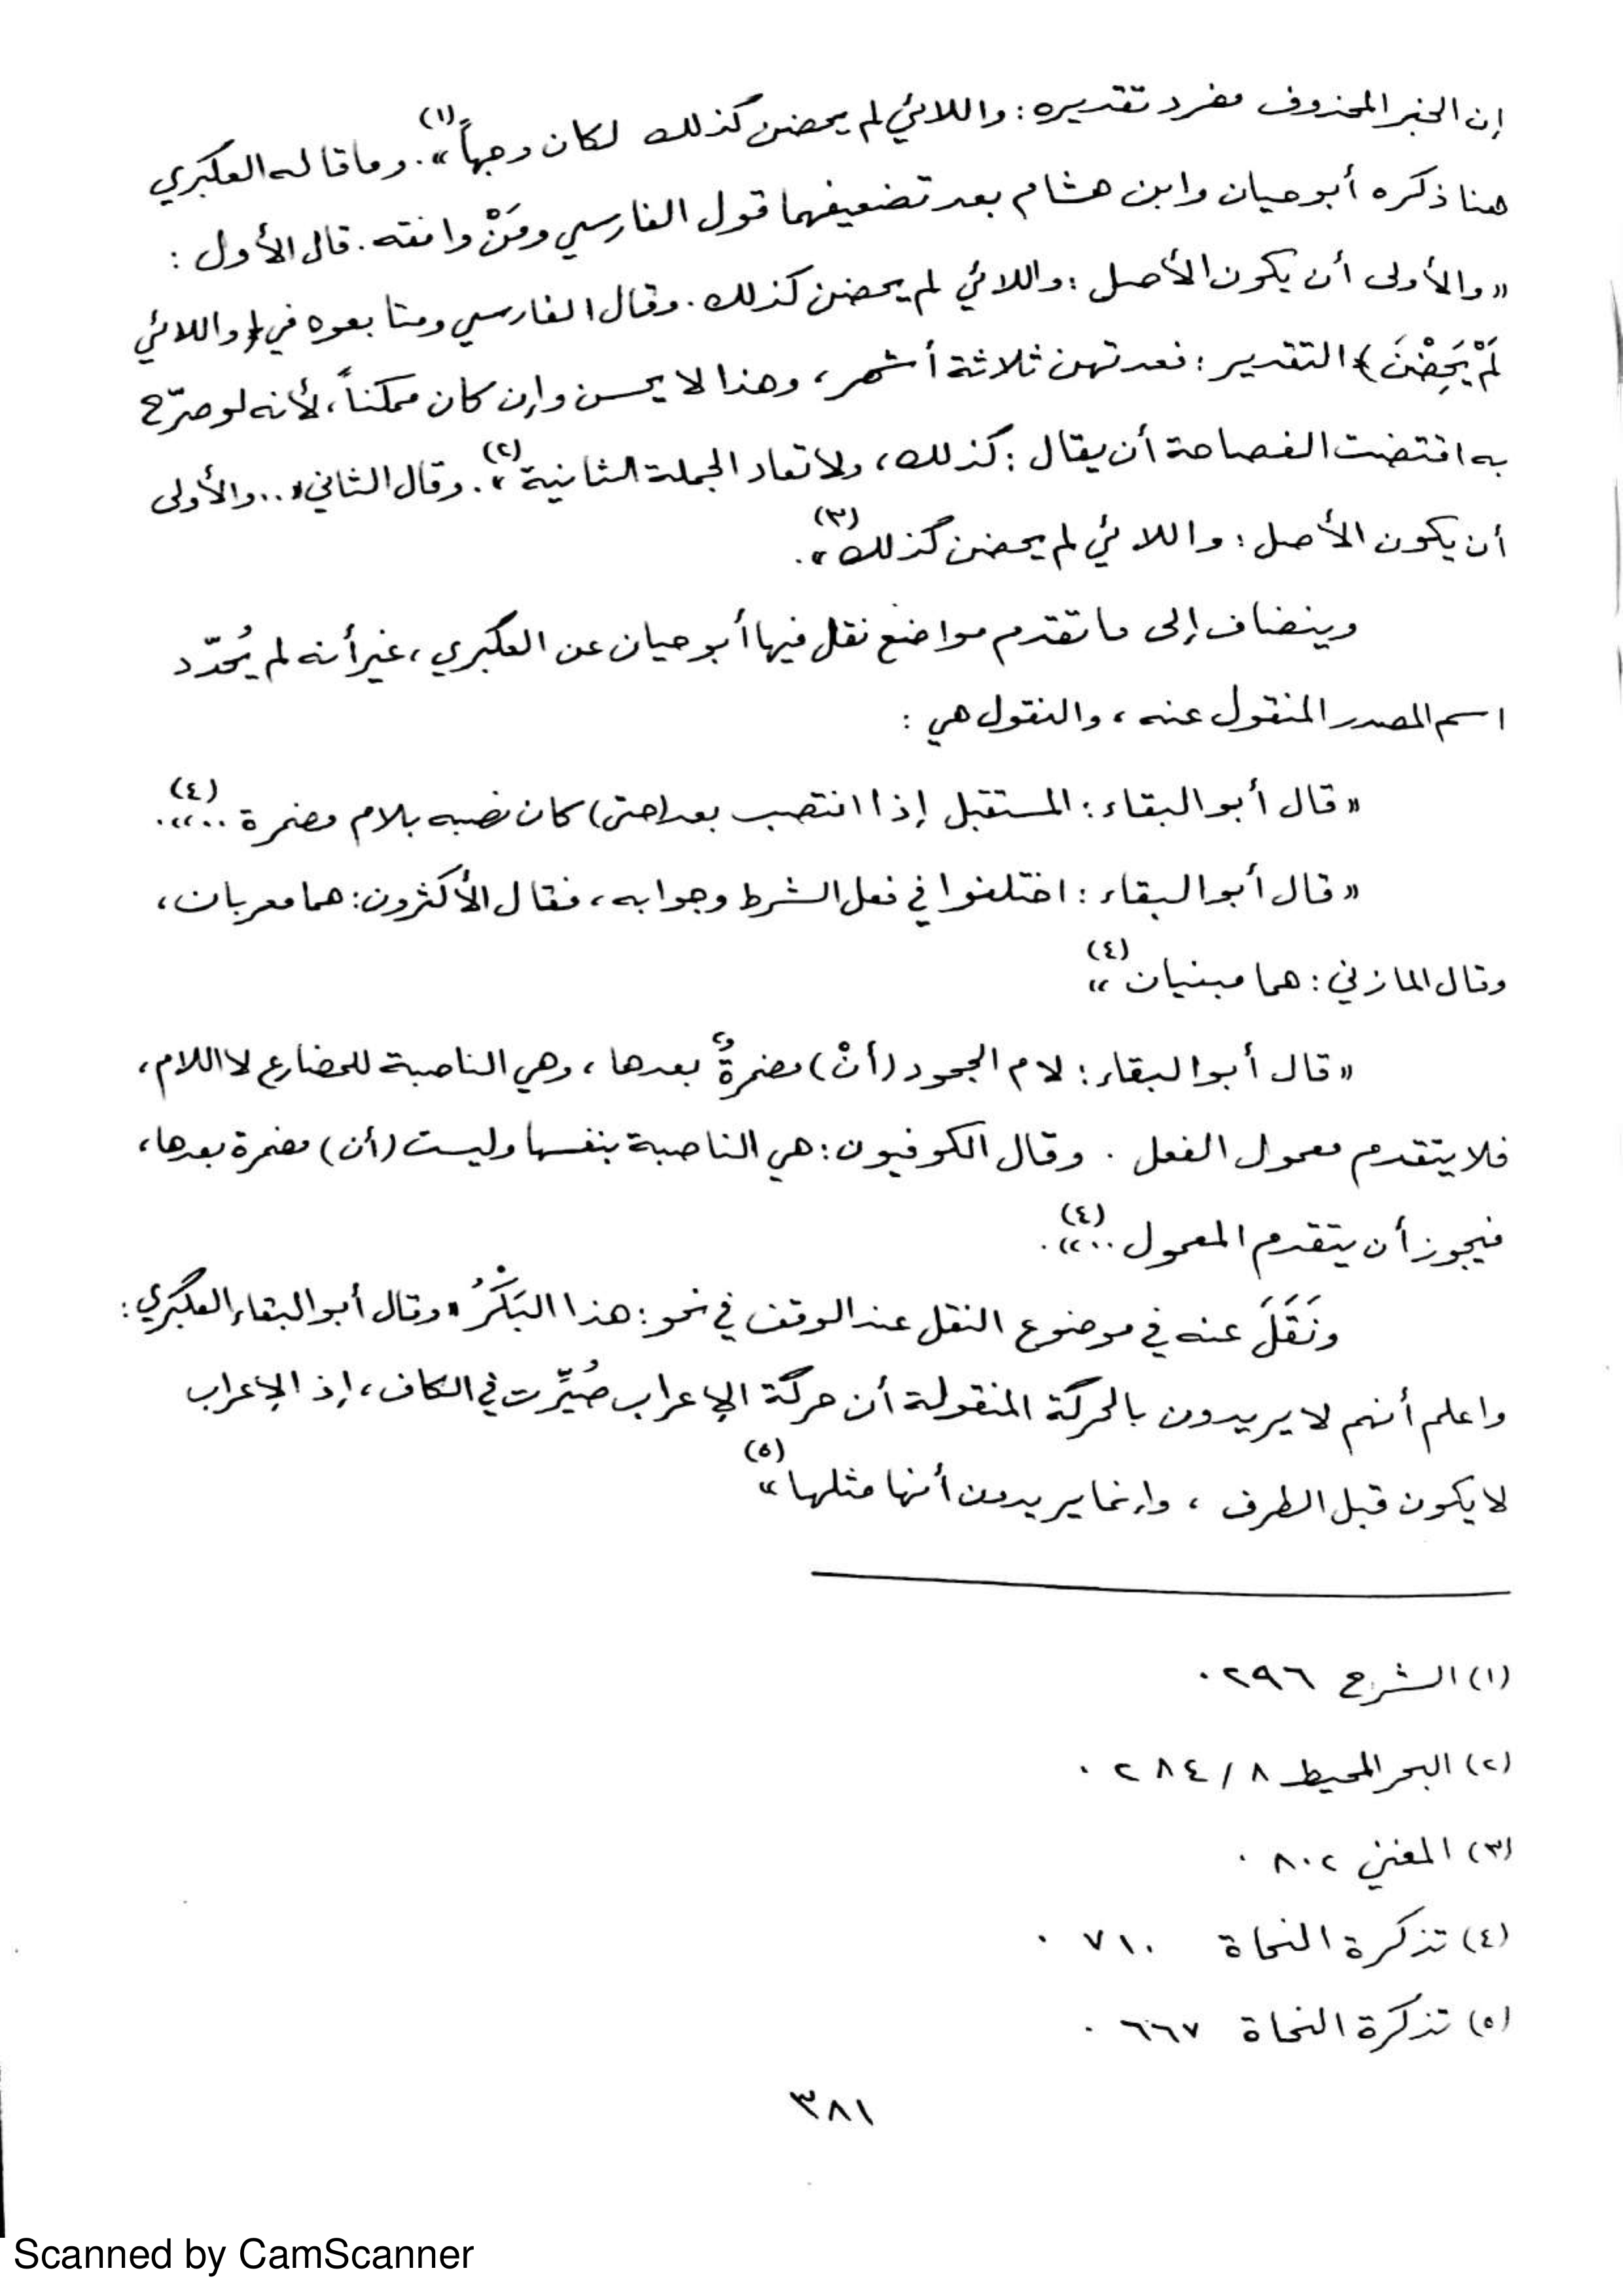 إن الخبر المحذوف مفرد تقديره : واللائي لم يحضن كذلك لكان وجهاً»(١). وما قاله العكبري
هنا ذكره أبو حيان وابن هشام بعد تضعيفهما قول الفارسي ومَنْ وافقه . قال الأول :
«والأولى أن يكون الأصل : واللائي لم يحضن كذلك . وقال الفارسي ومتابعوه في ﴿واللائي
لَمْ يَحِضْنَ﴾ التقدير : فعدتهن ثلاثة أشهر ، وهذا لا يحسن وإن كان ممكناً ، لأنه لو صرّح
به اقتضت الفصاحة أن يقال : كذلك ، ولا تعاد الجملة الثانية»(٢). وقال الثاني «..والأولى
أن يكون الأصل : واللائي لم يحضن كذلك»(٣).
وينضاف إلى ما تقدم مواضع نقل فيها أبو حيان عن العكبري ، غير أنه لم يُحدّد
اسم المصدر المنقول عنه ، والنقول هي :
«قال أبو البقاء : المستقبل إذا انتصب بعد (حتى) كان نصبه بلام مضمرة ..»(٤).
«قال أبو البقاء : اختلفوا في فعل الشرط وجوابه ، فقال الأكثرون : هما معربان ،
وقال المازني : هما مبنيان»(٤)
«قال أبو البقاء : لام الجحود (أنْ) مضمرةٌ بعدها ، وهي الناصبة للمضارع لا اللام ،
فلا يتقدم معمول الفعل . وقال الكوفيون : هي الناصبة بنفسها وليست (أن) مضمرة بعدها ،
فيجوز أن يتقدم المعمول ..»(٤).
ونَقَلَ عنه في موضوع النقل عند الوقف في نحو : هذا البَكْرُ «وقال أبو البقاء العكبري :
واعلم أنهم لا يريدون بالحركة المنقولة أن حركة الإعراب صُيِّرت في الكاف ، إذ الإعراب
لا يكون قبل الطرف ، وإنما يريدون أنها مثلها»(٥)
(١) الشرح ٢٩٦ .
(٢) البحر المحيط ٨ / ٢٨٤ .
(٣) المغني ٨٠٢ .
(٤) تذكرة النحاة ٧١٠ .
(٥) تذكرة النحاة ٦٦٧ .
٣٨١
Scanned by CamScanner